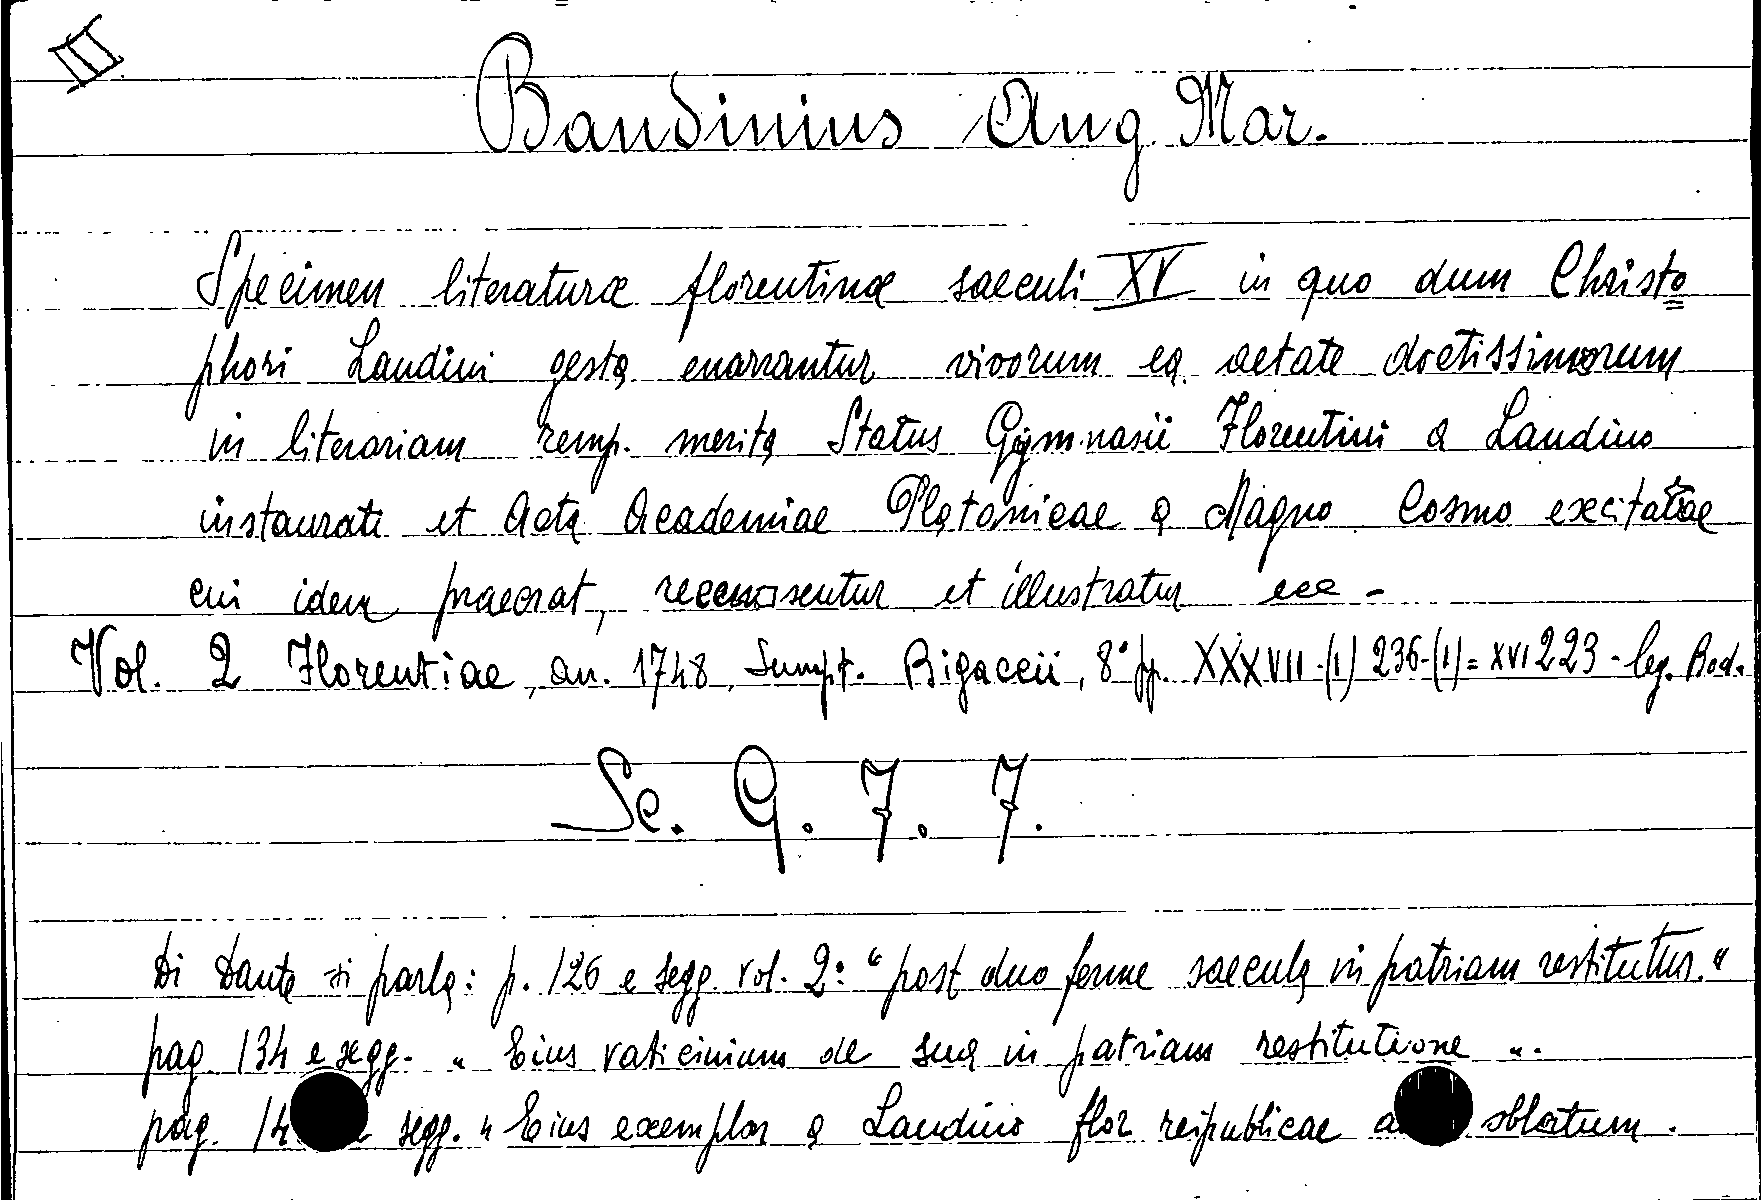 III
Bandinius Ang. Mar.
Specimen literaturæ florentinæ saeculi XV in quo dum Christo
phori Landini gesta enarrantur virorum ea aetate doctissimorum
in literariam remp. merita Status Gymnasii Florentini a Landino
instaurati et Acta Academiae Platonicae a Magno Cosmo excitatae
cui idem praeerat, recensentur et illustratur ecc -
Vol. 2 Florentiae, an. 1748, Sumpt. Rigaccii, 8° pp. XXXVII-(1) 236-(1)= XVI 223 - leg. Bod.
Sc. G. 7. 7.
Di Dante si parla: p. 126 e segg. vol. 2: "post duo ferme saecula in patriam restitutus."
pag 134 e segg. " Eius vaticinium de sua in patriam restitutione ".
pag. 14 segg. " Eius exemplar a Landino flor reipublicae oblatum.